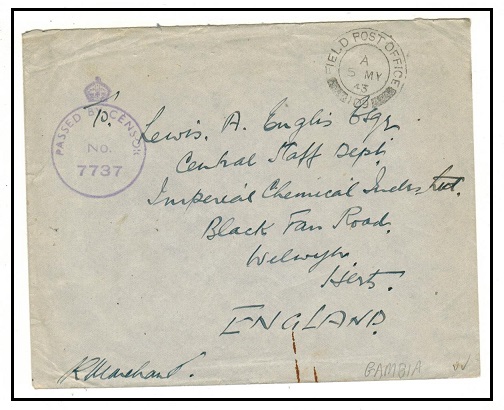 FIELD POST OFFICE
A
5 MY
43
PASSED BY CENSOR
No.
7737
To. Lewis. A. Englis Esqr
Central Staff Dept.
Imperial Chemical Indus. Ltd.
Black Fan Road.
Welwyn.
Herts.
ENGLAND.
R Marchant.
GAMBIA